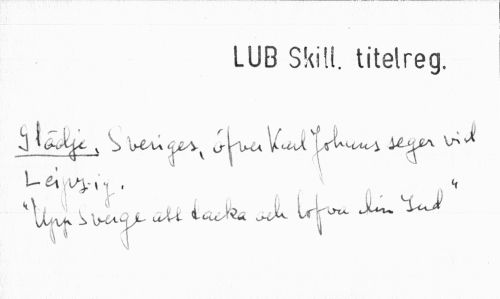 LUB Skill. titelreg.
Glädje, Sveriges, öfver Karl Johans seger vid
Leipzig.
"Upp Sverge att tacka och lofva din Gud"